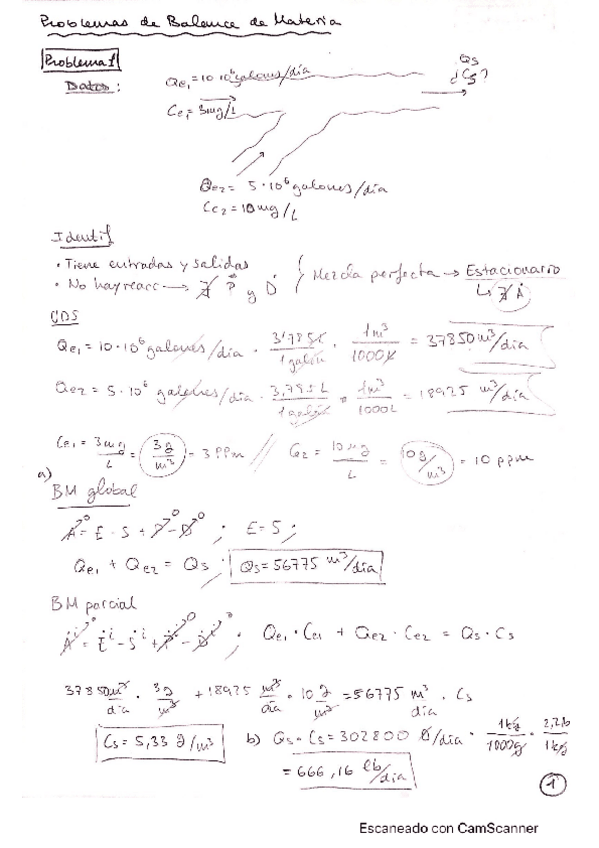 Problemas de Balance de Materia
Problema 1
Datos:
Qe₁ = 10·10⁶ galones/día
Qs
¿Cs?
Ce₁ = 3mg/L
Qe₂ = 5·10⁶ galones/día
Ce₂ = 10 mg/L
Identif
· Tiene entradas y salidas
· No hay reacc → ∄ P y D
Mezcla perfecta → Estacionario
↳ ∄ A
UDS
Qe₁ = 10·10⁶ galones/día · 3'785L/1 galón · 1m³/1000L = 37850 m³/día
Qe₂ = 5·10⁶ galones/día · 3,785L/1 galón · 1m³/1000L = 18925 m³/día
Ce₁ = 3mg/L = 3g/m³ = 3 ppm // Ce₂ = 10mg/L = 10g/m³ = 10 ppm
a)
BM global
A⁰ = E - S + P⁰ - D⁰ ; E = S ;
Qe₁ + Qe₂ = Qs ; Qs = 56775 m³/día
BM parcial
Qe₁·Ce₁ + Qe₂·Ce₂ = Qs·Cs
37850 m³/día · 3g/m³ + 18925 m³/día · 10g/m³ = 56775 m³/día · Cs
Cs = 5,33 g/m³ b) Qs·Cs = 302800 g/día · 1kg/1000g · 2,2lb/1kg
= 666,16 lb/día
1
Escaneado con CamScanner